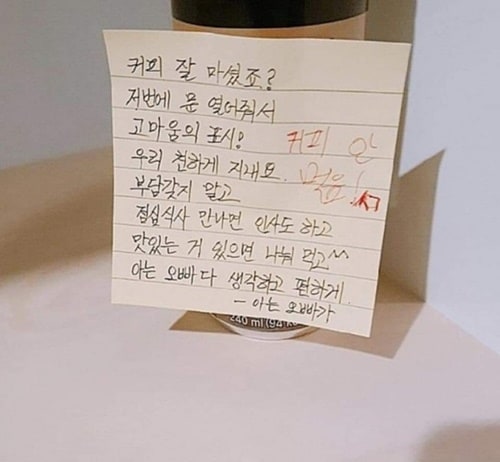 커피 잘 마셨죠?
저번에 문 열어줘서
고마움의 표시!
우리 친하게 지내요.
부담갖지 말고
점심식사 만나면 인사도 하고
맛있는 거 있으면 나눠 먹고^^
아는 오빠다 생각하고 편하게.
- 아는 오빠가
커피 안
먹음!
240 ml (94